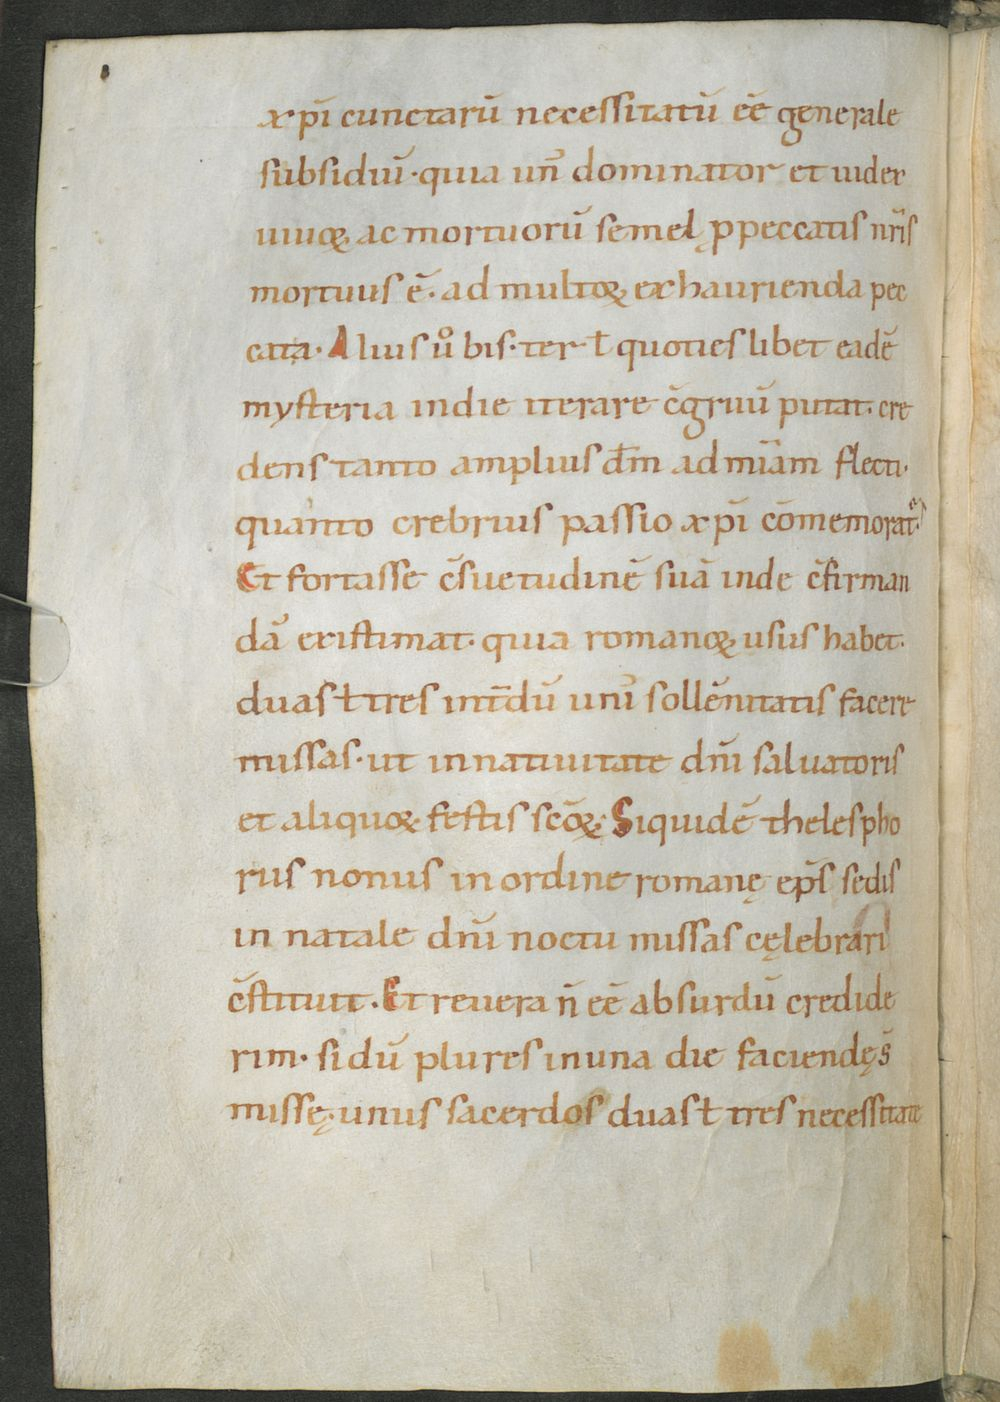 xp̄i cunctarū necessitatū eē generale
subsidiū· quia un̄ dominator et iudex
uiuoꝝ ac mortuorū semel ꝓ peccatis nr̄is
mortuus ē· ad multoꝝ exhaurienda pec
cata· Alius ů bis· ter· ł quoties libet eadē
mysteria in die iterare c̄gruū putat· cre
dens tanto amplius dm̄ ad mīam flecti·
quanto crebrius passio xp̄i cōmemorat᷒
Et fortasse c̄suetudinē suā inde c̄firman
dā existimat· quia romanoꝝ usus habet·
duas ł tres int̄dū uni᷒ sollēnitatis facere
missas· ut in natiuitate dn̄i saluatoris
et aliquoꝝ festis sc̄oꝝ· Siquidē thelespho
rus nonus in ordine romanę ep̄s sedis
in natale dn̄i noctu missas cęlebrari
c̄stituit· Et reuera n̄ eē absurdū credide
rim· si dū plures in una die faciendę s̄
missę· unus sacerdos duas ł tres necessitate